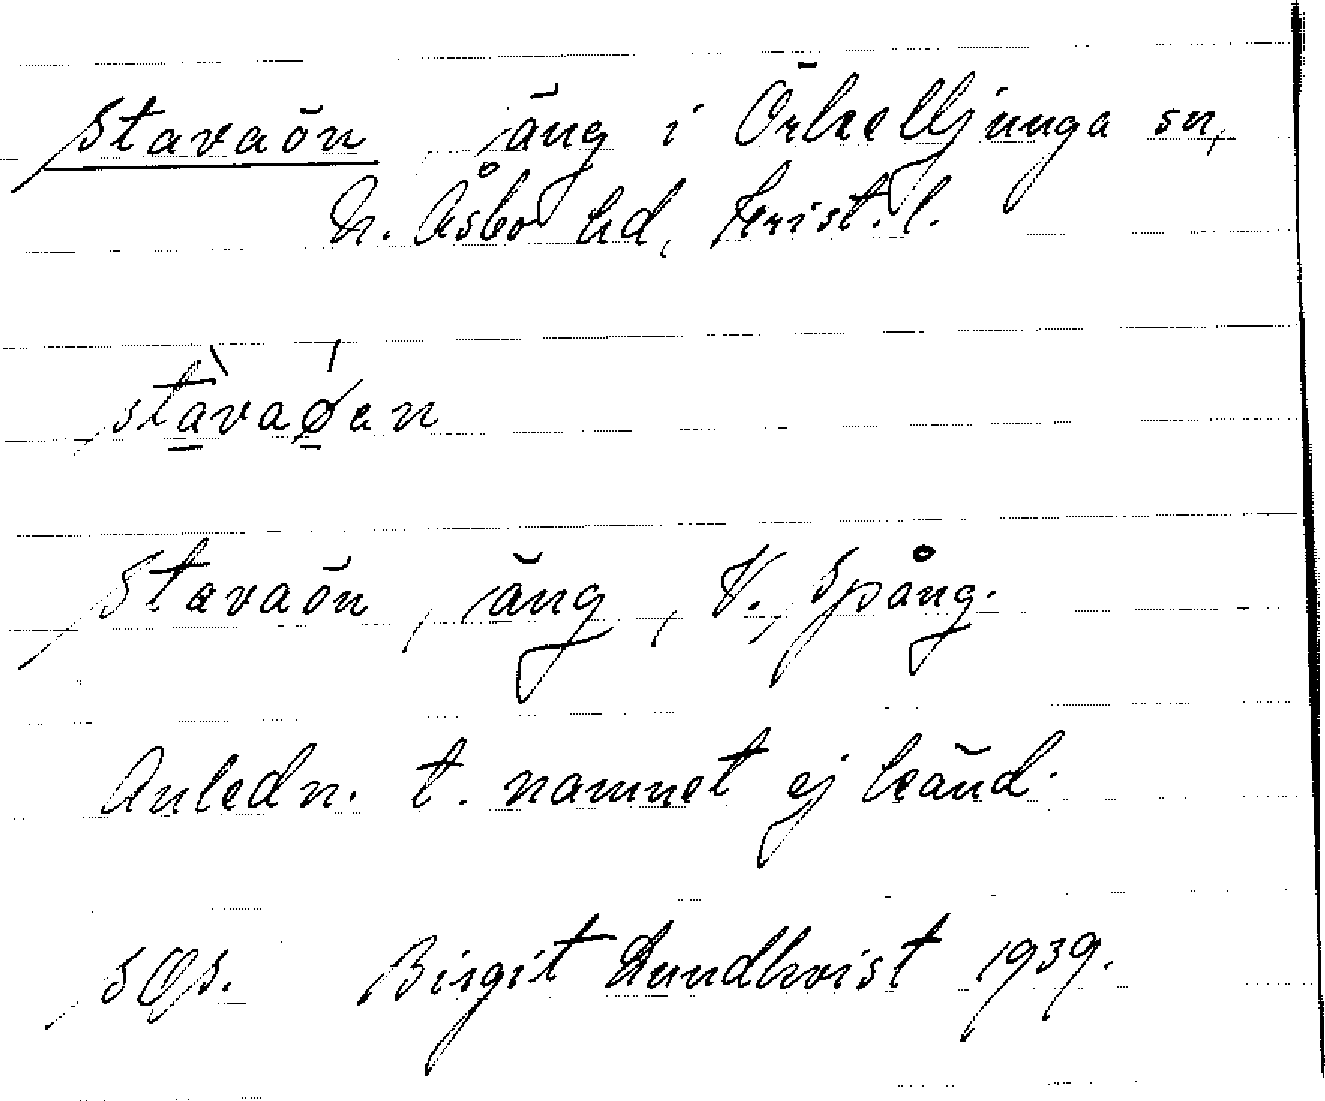 Stavaön äng i Örkelljunga sn,
N. Åsbo hd, Krist. l.
stàvaǿen
Stavaön, äng, V. Spång.
Anledn. t. namnet ej känd.
Birgit Lundkvist 1939.